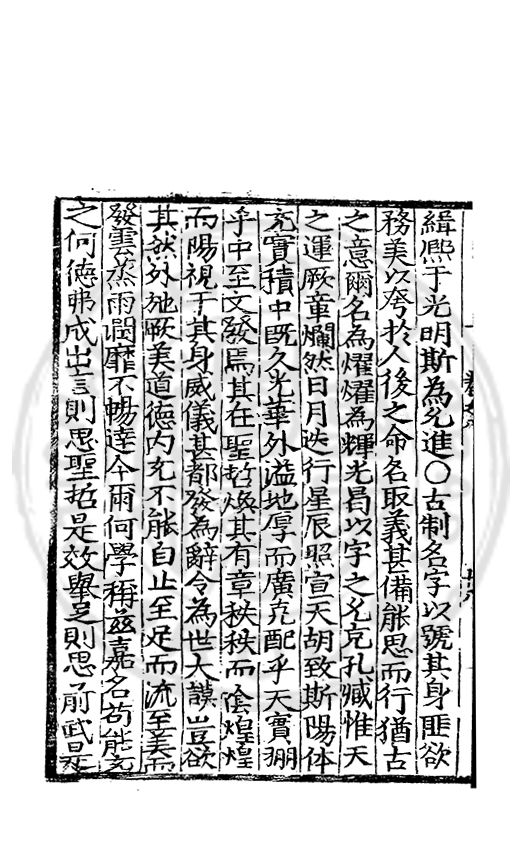 緝熈于光明斯為允進〇古制名字以號其身匪欲
務美以夸於人後之命名取義甚備能思而行猶古
之意爾名為燿燿為輝光曷以字之允充孔臧惟天
之運厥章爛然日月迭行星辰照宣天胡致斯陽体
充實積中既久光華外溢地厚而廣克配乎天實弸
乎中至文發焉其在聖哲煥其有章秩秩而陰煌煌
而陽視于其身威儀甚都發為辭令為世大謨豈欲
其然外馳厥美道德内充不能自止至足而流至美而
發雲烝雨潤靡不暢達今爾何學稱茲嘉名苟能充
之何德弗成出言則思聖哲是效舉足則思前武是